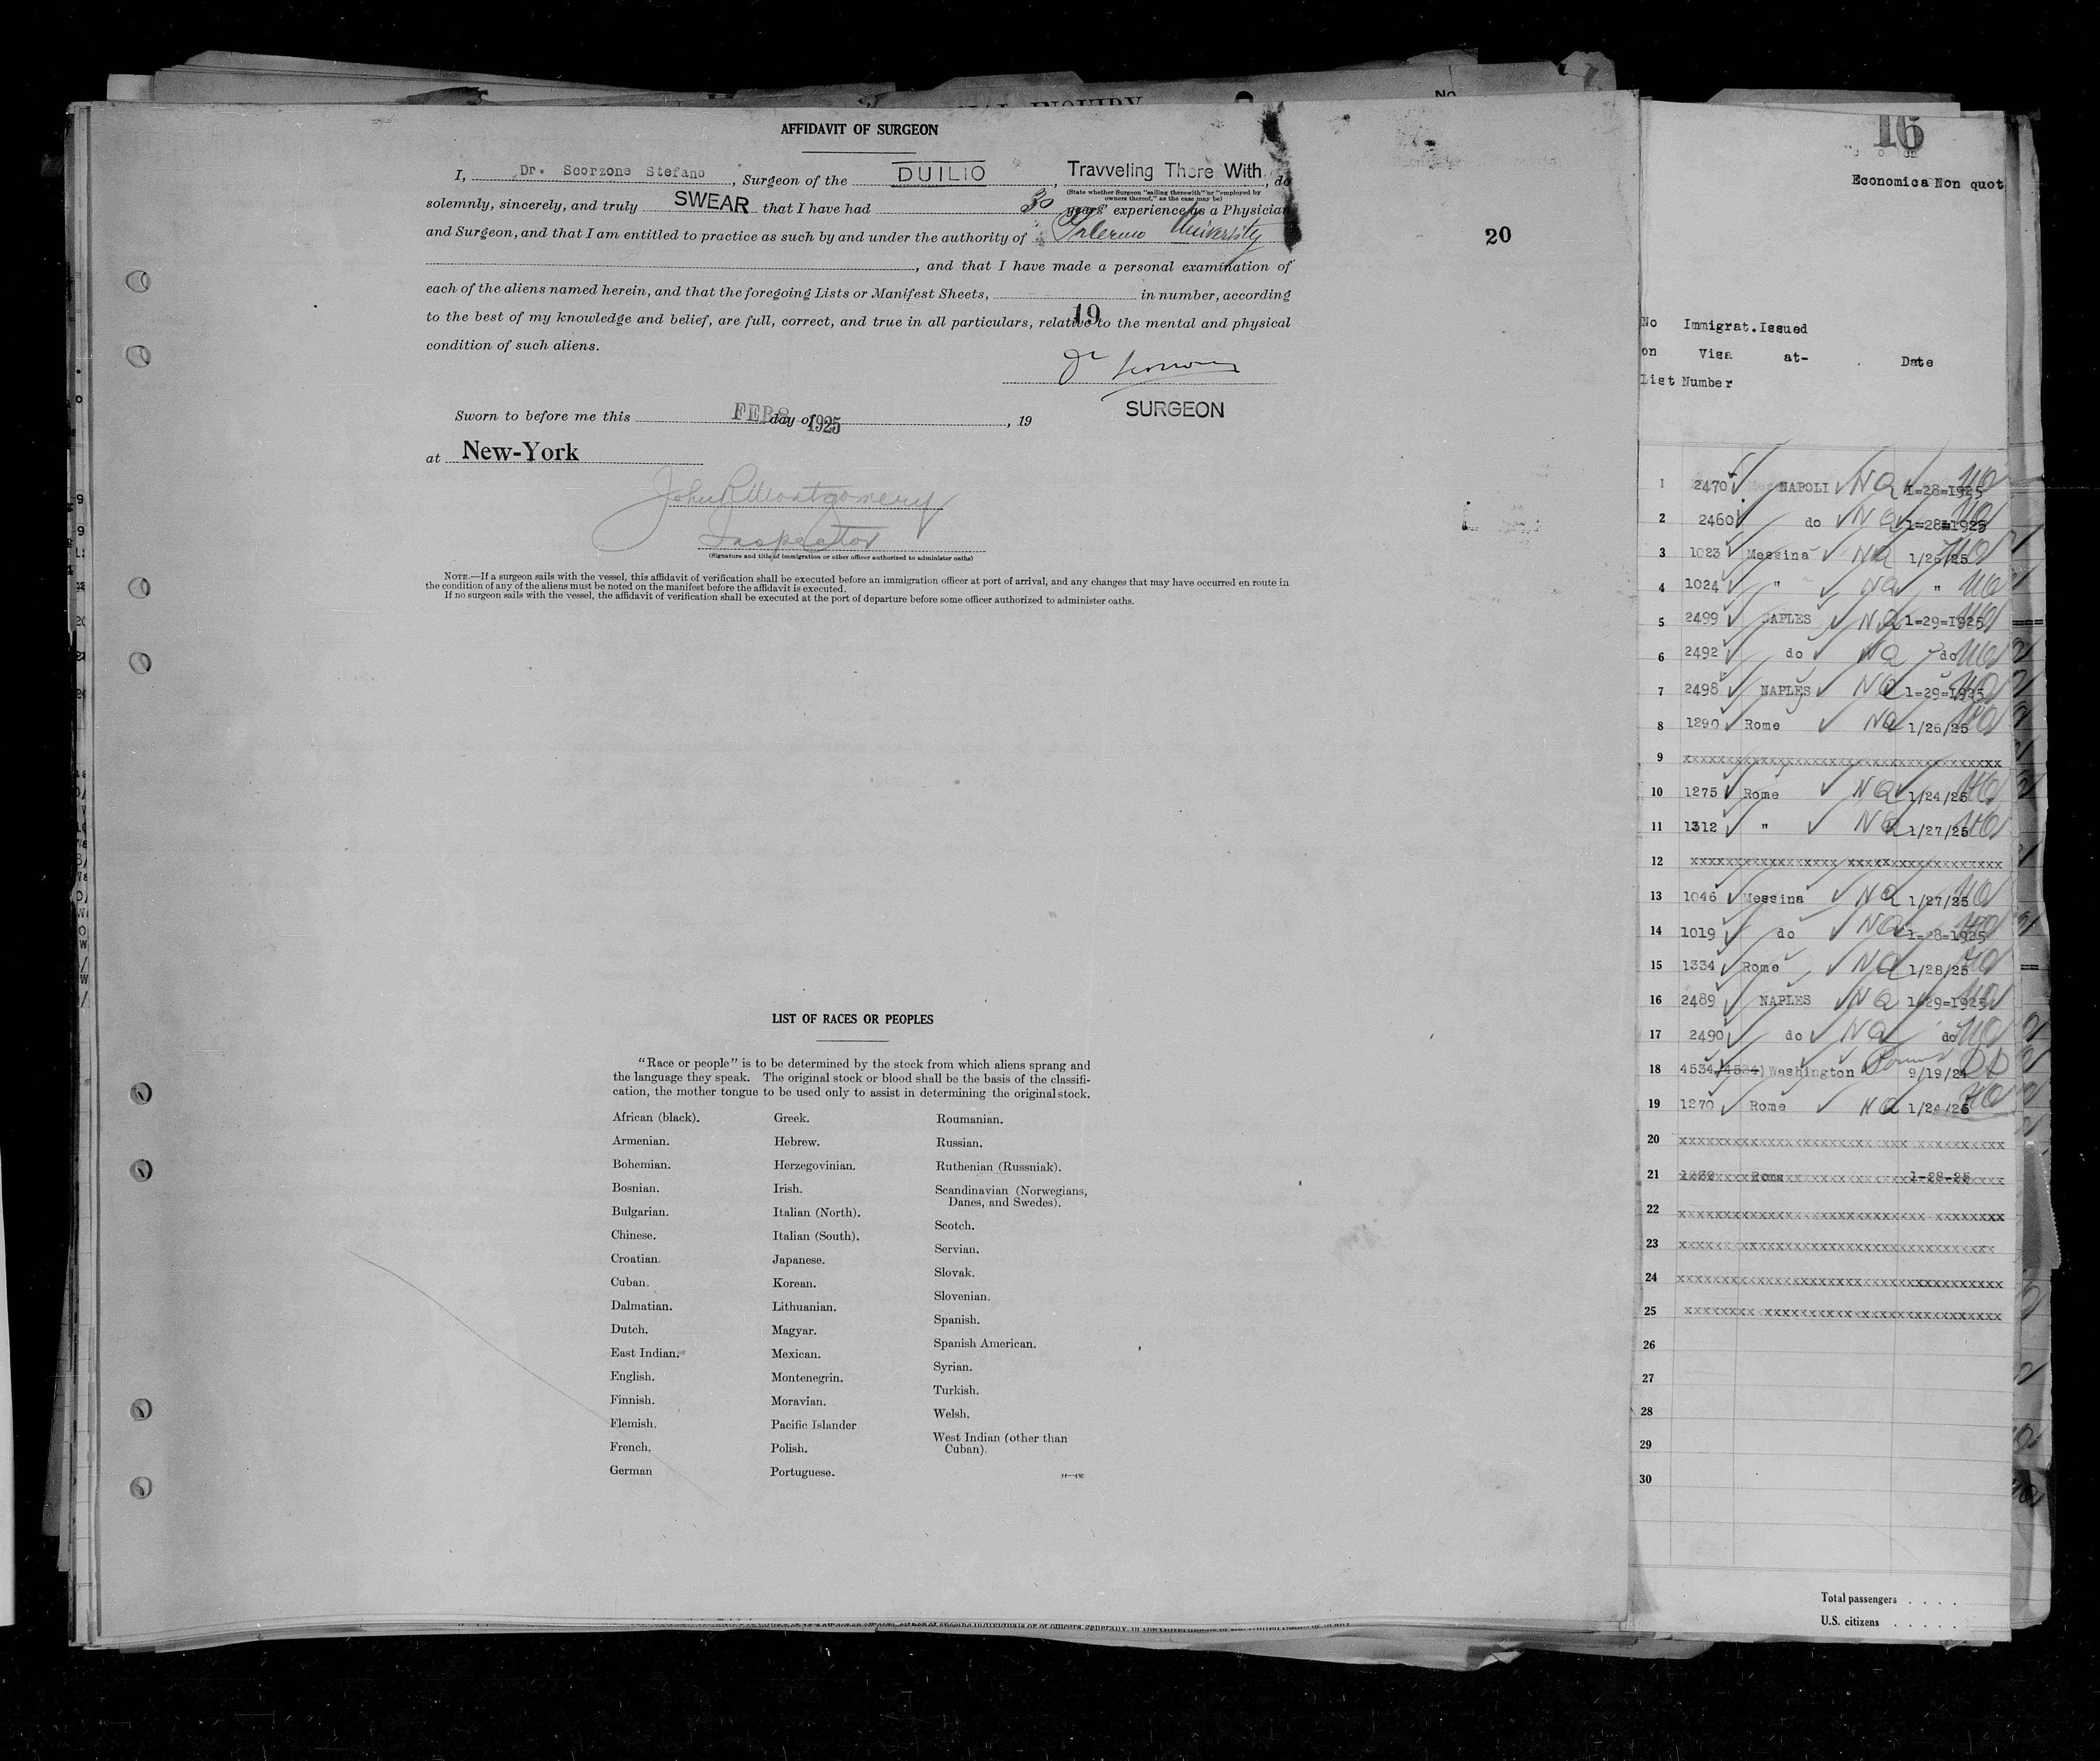 AFFIDAVIT OF SURGEON
I, Dr. Scorzone Stefano, Surgeon of the DUILIO, Travveling There With, do
(State whether Surgeon "sailing therewith" or "employed by
owners thereof," as the case may be)
solemnly, sincerely, and truly SWEAR that I have had 30 years' experience as a Physician
and Surgeon, and that I am entitled to practice as such by and under the authority of Palermo University
, and that I have made a personal examination of
each of the aliens named herein, and that the foregoing Lists or Manifest Sheets, in number, according
19
to the best of my knowledge and belief, are full, correct, and true in all particulars, relative to the mental and physical
condition of such aliens.
SURGEON
Sworn to before me this FEB 8 day of 1925, 19
at New-York
John R Montgomery
Inspector
(Signature and title of immigration or other officer authorized to administer oaths)
NOTE.—If a surgeon sails with the vessel, this affidavit of verification shall be executed before an immigration officer at port of arrival, and any changes that may have occurred en route in
the condition of any of the aliens must be noted on the manifest before the affidavit is executed.
If no surgeon sails with the vessel, the affidavit of verification shall be executed at the port of departure before some officer authorized to administer oaths.
20
LIST OF RACES OR PEOPLES
"Race or people" is to be determined by the stock from which aliens sprang and
the language they speak. The original stock or blood shall be the basis of the classifi-
cation, the mother tongue to be used only to assist in determining the original stock.
African (black).
Armenian.
Bohemian.
Bosnian.
Bulgarian.
Chinese.
Croatian.
Cuban.
Dalmatian.
Dutch.
East Indian.
English.
Finnish.
Flemish.
French.
German
Greek.
Hebrew.
Herzegovinian.
Irish.
Italian (North).
Italian (South).
Japanese.
Korean.
Lithuanian.
Magyar.
Mexican.
Montenegrin.
Moravian.
Pacific Islander
Polish.
Portuguese.
Roumanian.
Russian.
Ruthenian (Russniak).
Scandinavian (Norwegians,
Danes, and Swedes).
Scotch.
Servian.
Slovak.
Slovenian.
Spanish.
Spanish American.
Syrian.
Turkish.
Welsh.
West Indian (other than
Cuban).
16
Economica Non quot
No Immigrat. Issued
on Visa at- Date
List Number
1 2470 NAPOLI NQ 1=28=1925
2 2460 do NQ 1=28=1925
3 1023 Messina NQ 1/26/25
4 1024 " NQ "
5 2499 NAPLES NQ 1=29=1925
6 2492 do NQ do
7 2498 NAPLES NQ 1=29=1925
8 1290 Rome NQ 1/26/25
9 xxxxxxxxxxxxxxxxxxxxxxxxxxxxxxxxxxxxx
10 1275 Rome NQ 1/24/25
11 1312 " NQ 1/27/25
12 xxxxxxxxxxxxxxxxx xxxxxxxxxxxxxxxxxx
13 1046 Messina NQ 1/27/25
14 1019 do NQ 1=28=1925
15 1334 Rome NQ 1/28/25
16 2489 NAPLES NQ 1=29=1925
17 2490 do NQ do
18 4534 (4534) Washington 9/19/24
19 1270 Rome NQ 1/24/25
20 xxxxxxxxxxxxxxxxxxxxxxxxxx xxxxxxxxxxx
21 Rome 1-28-25
22 xxxxxxxxxxxxxxxxxxxxxxxxxxxx xxxxxxxx
23 xxxxxxx xxxxxxxxxxxxxxxxxxxxxxxxxxxx
24 xxxxxxxxxxxxxxxxxxxxxxxxxxxxxxxxxxxxx
25 xxxxxxxx xxxxxxxxxxxxxxxxxxxxxxxxxxx
26
27
28
29
30
Total passengers . . . .
U.S. citizens . . . . .